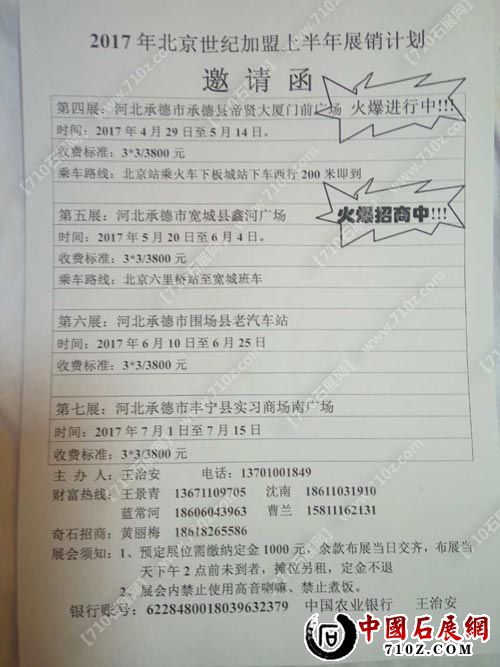 2017年北京世纪加盟上半年展销计划
邀请函
第四展：河北承德市承德县帝贤大厦门前广场 火爆进行中!!!
时间：2017年4月29日至5月14日。
收费标准：3*3/3800元
乘车路线：北京站乘火车下板城站下车西行200米即到
火爆招商中!!!
第五展：河北承德市宽城县鑫河广场
时间：2017年5月20日至6月4日。
收费标准：3*3/3800元
乘车路线：北京六里桥站至宽城班车
第六展：河北承德市围场县老汽车站
时间：2017年6月10日至6月25日
收费标准：3*3/3800元
第七展：河北承德市丰宁县实习商场南广场
时间：2017年7月1日至7月15日
收费标准：3*3/3800元
主办人：王治安 电话：13701001849
财富热线：王景青 13671109705 沈南 18611031910
蓝常河 18606043963 曹兰 15811162131
奇石招商：黄丽梅 18618265586
展会须知：1、预定展位需缴纳定金1000元，余款布展当日交齐，布展当
天下午2点前未到者，摊位另租，定金不退
2、展会内禁止使用高音喇嘛、禁止煮饭。
银行账号：6228480018039632379 中国农业银行 王治安
中國石展網
710Z.COM